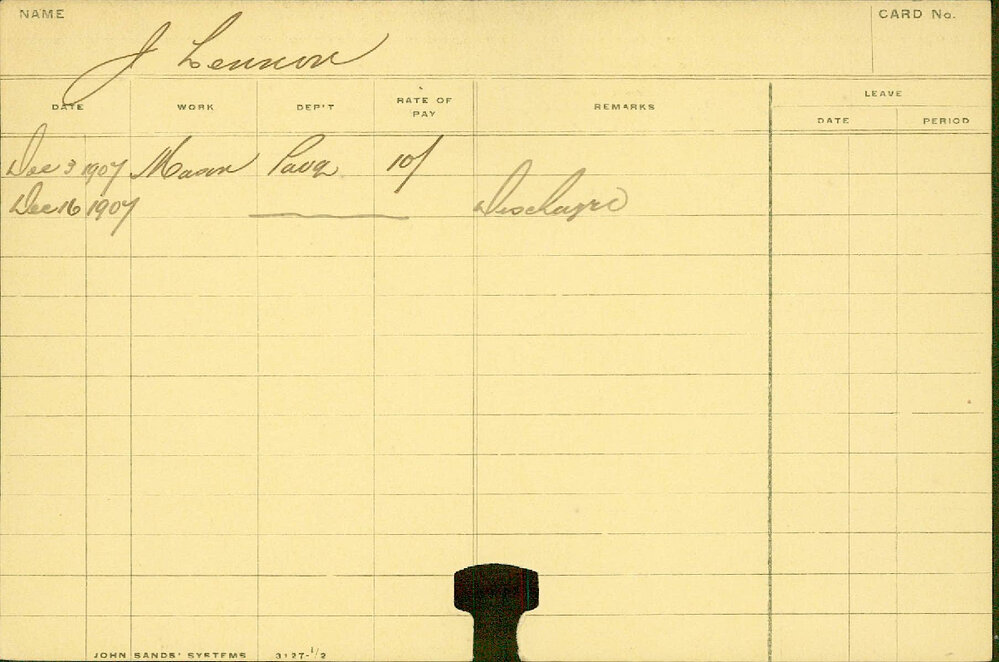 NAME
CARD No.
J Lennon
DATE WORK DEP'T RATE OF PAY REMARKS LEAVE
DATE PERIOD
Dec 3 1907 Mason Pavg 10/
Dec 16 1907 Discharge
JOHN SANDS' SYSTEMS 3127-1/2